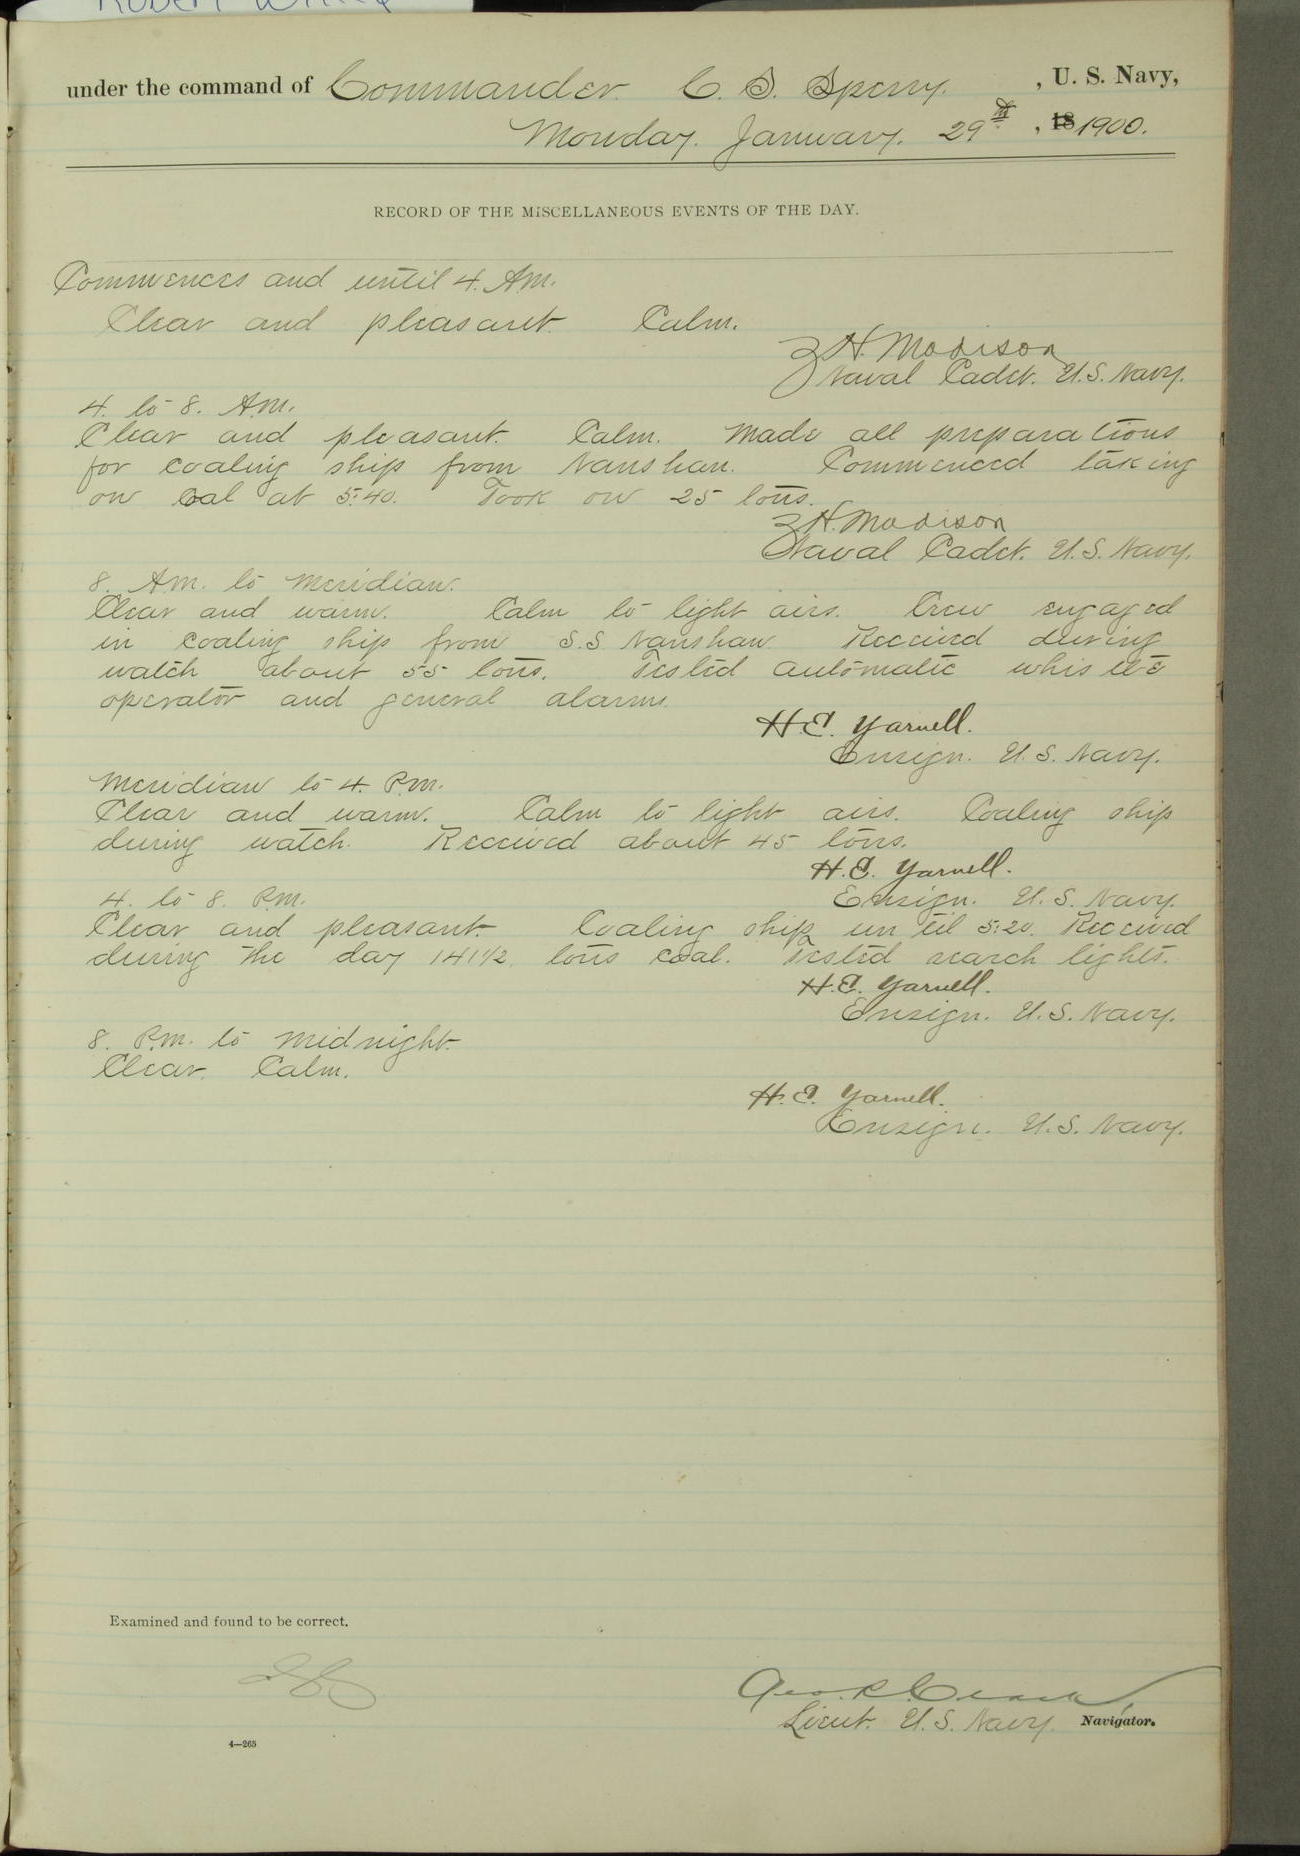 under the command of Commander. C. S. Sperry. , U. S. Navy,
Monday. January. 29th , 18 1900.
RECORD OF THE MISCELLANEOUS EVENTS OF THE DAY.
Commences and until 4. A.M.
Clear and pleasant. Calm.
Z. H. Madison
Naval Cadet. U.S. Navy.
4. to 8. A.M.
Clear and pleasant. Calm. Made all preparations
for coaling ship from Nanshan. Commenced taking
on coal at 5:40. Took on 25 tons.
Z. H. Madison
Naval Cadet. U.S. Navy.
8. A.M. to Meridian.
Clear and warm. Calm to light airs. Crew engaged
in coaling ship from S.S. Nanshan. Received during
watch about 55 tons. Tested automatic whistle
operator and general alarms.
H. E. Yarnell.
Ensign. U. S. Navy.
Meridian to 4. P.M.
Clear and warm. Calm to light airs. Coaling ship
during watch. Received about 45 tons.
H. E. Yarnell.
Ensign. U. S. Navy.
4. to 8. P.M.
Clear and pleasant. Coaling ship until 5:20. Received
during the day 141 1/2 tons coal. Tested search lights.
H. E. Yarnell.
Ensign. U. S. Navy.
8. P.M. to Midnight.
Clear. Calm.
H. E. Yarnell.
Ensign. U. S. Navy.
Examined and found to be correct.
Geo. R.
Lieut. U. S. Navy. Navigator.
4—265